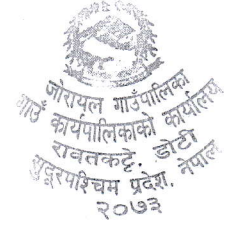 जोरायल गाउँपालिका
गाउँ कार्यपालिकाको कार्यालय
रावतकट्टे, डोटी
सुदूरपश्चिम प्रदेश, नेपाल
२०७३